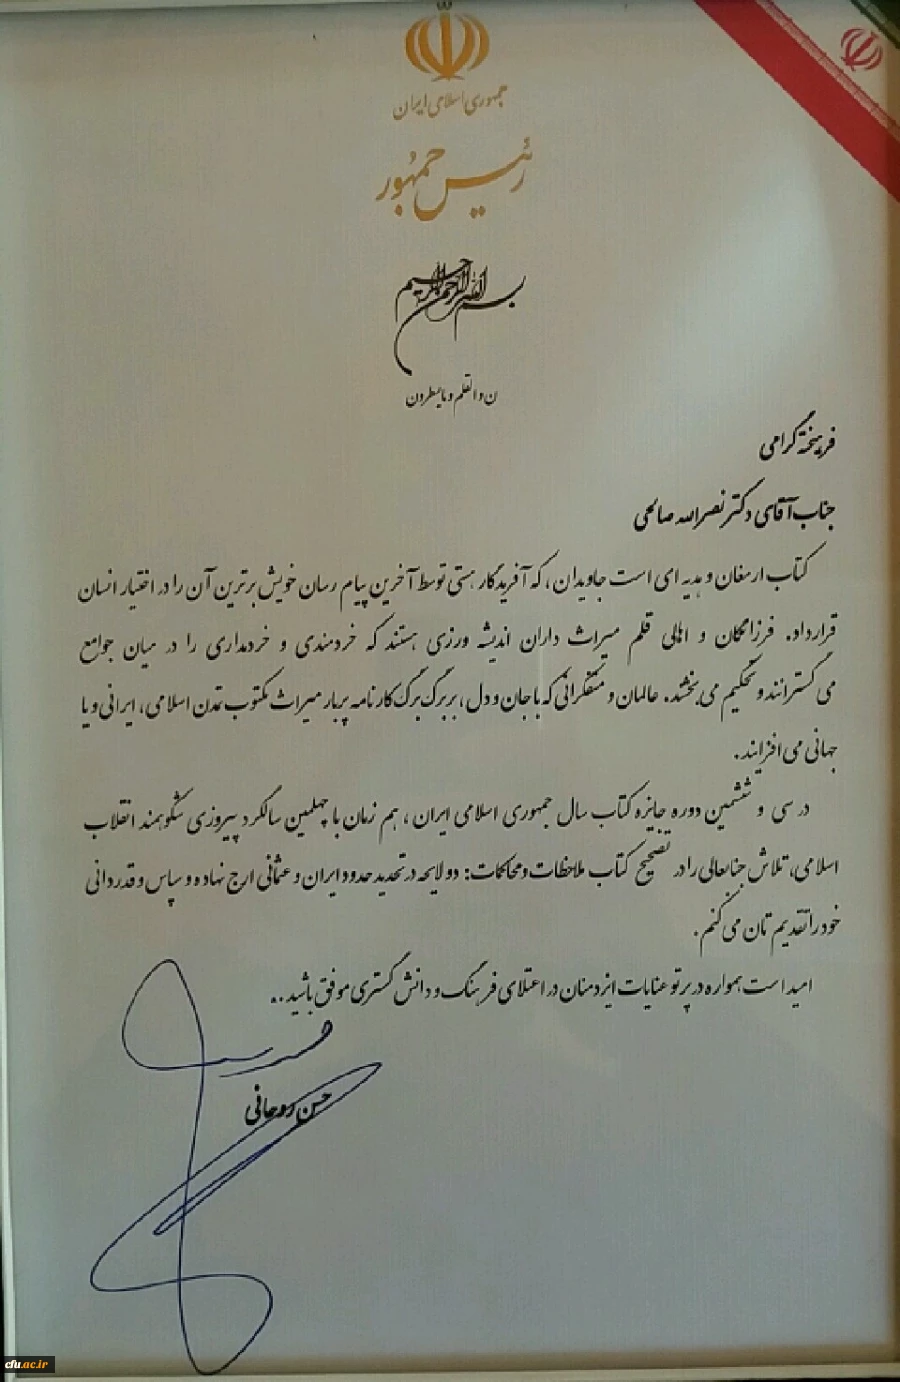 جمهوری اسلامی ایران
رئیس جمهور
بسم الله الرحمن الرحیم
ن والقلم و ما یسطرون
فرهیخته گرامی
جناب آقای دکتر نصرالله صالحی
کتاب ارمغان و هدیه ای است جاویدان، که آفریدگار هستی توسط آخرین پیام رسان خویش برترین آن را در اختیار انسان
قرار داد. فرزانگان و اهالی قلم میراث داران اندیشه ورزی هستند که خردمندی و خردمداری را در میان جوامع
می گسترانند و تحکیم می بخشند. عالمان و متفکرانی که با جان و دل، بر برگ برگ کارنامه پربار میراث مکتوب تمدن اسلامی، ایرانی و یا
جهانی می افزایند.
در سی و ششمین دوره جایزه کتاب سال جمهوری اسلامی ایران، هم زمان با چهلمین سالگرد پیروزی شکوهمند انقلاب
اسلامی، تلاش جنابعالی را در تصحیح کتاب ملاحظات و محاکمات: دو لایحه در تحدید حدود ایران و عثمانی ارج نهاده و سپاس و قدردانی
خود را تقدیم تان می کنم.
امید است همواره در پرتو عنایات ایزد منان در اعتلای فرهنگ و دانش گستری موفق باشید..
حسن روحانی
cfu.ac.ir